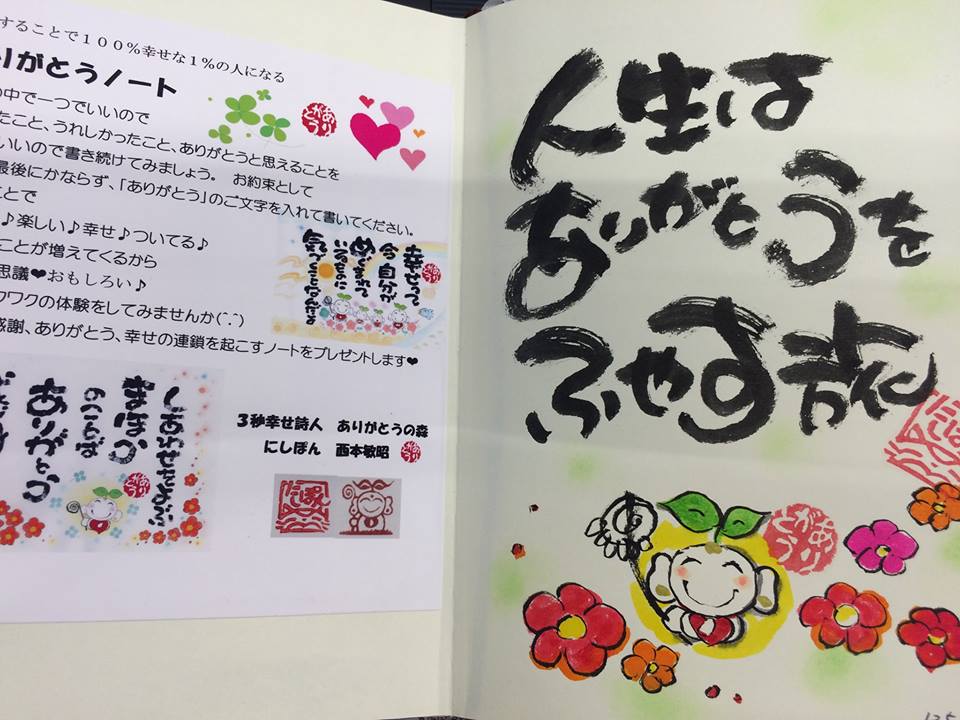 することで１００％幸せな１％の人になる
りがとうノート
の中で一つでいいので
たこと、うれしかったこと、ありがとうと思えることを
いいので書き続けてみましょう。　お約束として
最後にかならず、「ありがとう」のご文字を入れて書いてください。
ことで
♪楽しい♪幸せ♪ついてる♪
ことが増えてくるから
思議❤おもしろい♪
クワクの体験をしてみませんか(^-^)
感謝、ありがとう、幸せの連鎖を起こすノートをプレゼントします❤
幸せって
今自分が
めぐまれて
いるのに
気づくことなんだよ
しあわせをよぶ
まほうの
ことば
ありがとう
３秒幸せ詩人　ありがとうの森
にしぽん　西本敏昭
人生は
ありがとうを
ふやす旅